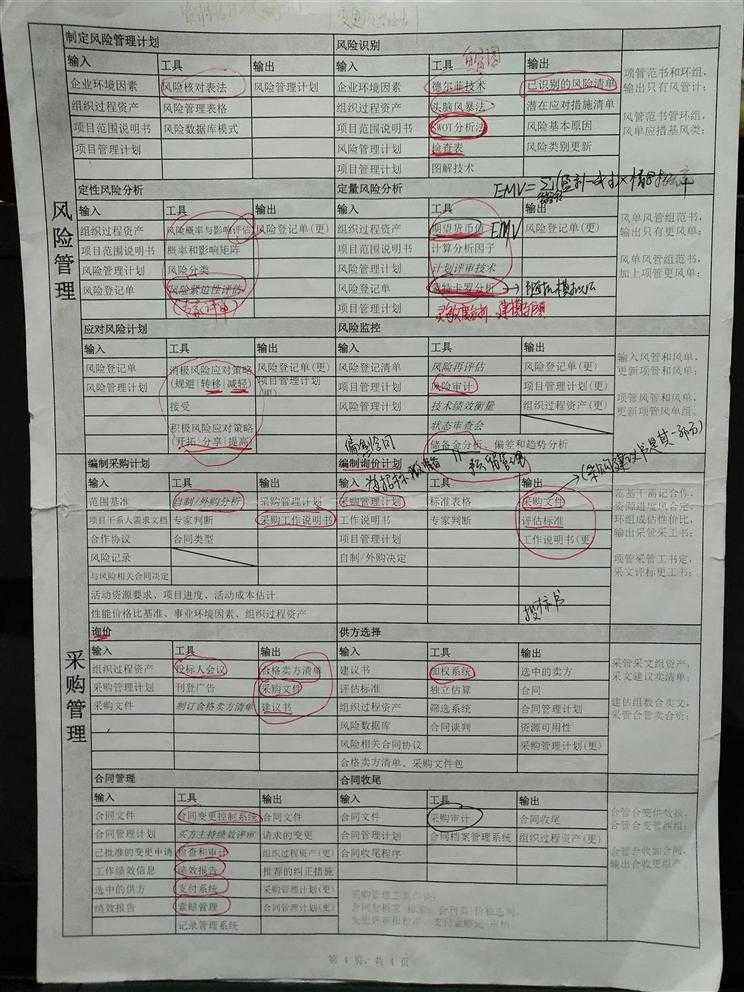 制定风险管理计划 风险识别
输入 工具 输出 输入 工具 输出
企业环境因素 风险核对表法 风险管理计划 企业环境因素 德尔菲技术 已识别的风险清单
组织过程资产 风险管理表格 组织过程资产 头脑风暴法 潜在应对措施清单
项目范围说明书 风险数据库模式 项目范围说明书 SWOT分析法 风险基本原因
项目管理计划 风险管理计划 检查表 风险类别更新
项目管理计划 图解技术
项管范书和环组,
输出只有风管计;
风管范书管环组,
风单应措基风类;
风险管理
定性风险分析 定量风险分析
EMV=
输入 工具 输出 输入 工具 输出
组织过程资产 风险概率与影响评估 风险登记单(更) 组织过程资产 期望货币值 EMV 风险登记单(更)
项目范围说明书 概率和影响矩阵 项目范围说明书 计算分析因子
风险管理计划 风险分类 风险管理计划 计划评审技术
风险登记单 风险紧迫性评估 风险登记单 蒙特卡罗分析
项目管理计划
风单风管组范书,
输出只有更风单;
风单风管组范书,
加上项管更风单;
应对风险计划 风险监控
输入 工具 输出 输入 工具 输出
风险登记单 消极风险应对策略 风险登记单(更) 风险登记清单 风险再评估 风险登记单(更)
(规避|转移|减轻)
风险管理计划 项目管理计划(更) 项目管理计划 风险审计 项目管理计划(更)
接受 风险管理计划 技术绩效衡量 组织过程资产(更)
积极风险应对策略 状态审查会
(开拓|分享|提高) 储备金分析、偏差和趋势分析
输入风管和风单,
更新项管和风单;
项管风管和风单,
更新项管风单组。
编制采购计划 编制询价计划
输入 工具 输出 输入 工具 输出
范围基准 自制/外购分析 采购管理计划 采购管理计划 标准表格 采购文件
项目干系人需求文档 专家判断 采购工作说明书 工作说明书 专家判断 评估标准
合作协议 合同类型 项目管理计划 工作说明书(更)
风险记录 自制/外购决定
与风险相关合同决定
活动资源要求、项目进度、活动成本估计
性能价格比基准、事业环境因素、组织过程资产
投标书
范基干需记合作,
环组成估性价比,
输出采管采工书;
项管采管工书定,
采文评标更工书;
采购管理
询价 供方选择
输入 工具 输出 输入 工具 输出
组织过程资产 投标人会议 合格卖方清单 建议书 加权系统 选中的卖方
采购管理计划 刊登广告 采购文件 评估标准 独立估算 合同
采购文件 制订合格卖方清单 建议书 组织过程资产 筛选系统 合同管理计划
风险数据库 合同谈判 资源可用性
风险相关合同协议 采购管理计划(更)
合格卖方清单、采购文件包
采管采文组资产,
采文建议卖清单;
建估组数合卖文,
采管合管卖合资;
合同管理 合同收尾
输入 工具 输出 输入 工具 输出
合同文件 合同变更控制系统 合同文件 合同文件 采购审计 合同收尾
合同管理计划 买方主持绩效评审 请求的变更 合同管理计划 合同档案管理系统 组织过程资产(更)
已批准的变更申请 检查和审计 组织过程资产(更) 合同收尾程序
工作绩效信息 绩效报告 推荐的纠正措施
选中的供方 支付系统 采购管理计划(更)
绩效报告 索赔管理 合同管理计划(更)
记录管理系统
第 4 页, 共 4 页